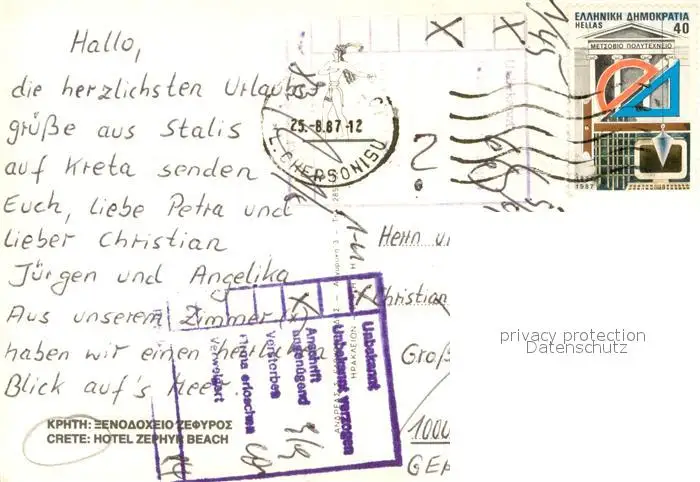 Hallo,
die herzlichsten Urlaubs
grüße aus Stalis
auf Kreta senden
Euch, liebe Petra und
lieber Christian
Jürgen und Angelika
Aus unserem Zimmer (x)
haben wir einen herrlichen
Blick auf's Meer.
ΚΡΗΤΗ: ΞΕΝΟΔΟΧΕΙΟ ΖΕΦΥΡΟΣ
CRETE: HOTEL ZEPHYR BEACH
ΕΛΛΗΝΙΚΗ ΔΗΜΟΚΡΑΤΙΑ
HELLAS 40
ΜΕΤΣΟΒΙΟ ΠΟΛΥΤΕΧΝΕΙΟ
1987
25.-8.87-12
L. CHERSONISU
?
X X
Herrn u
Christian
Groß
1000
GER
X X
Unbekannt
Unbekannt verzogen
Anschrift
ungenügend
Verstorben
Firma erloschen
Verweigert
ΗΡΑΚΛΕΙΟΝ
privacy protection
Datenschutz